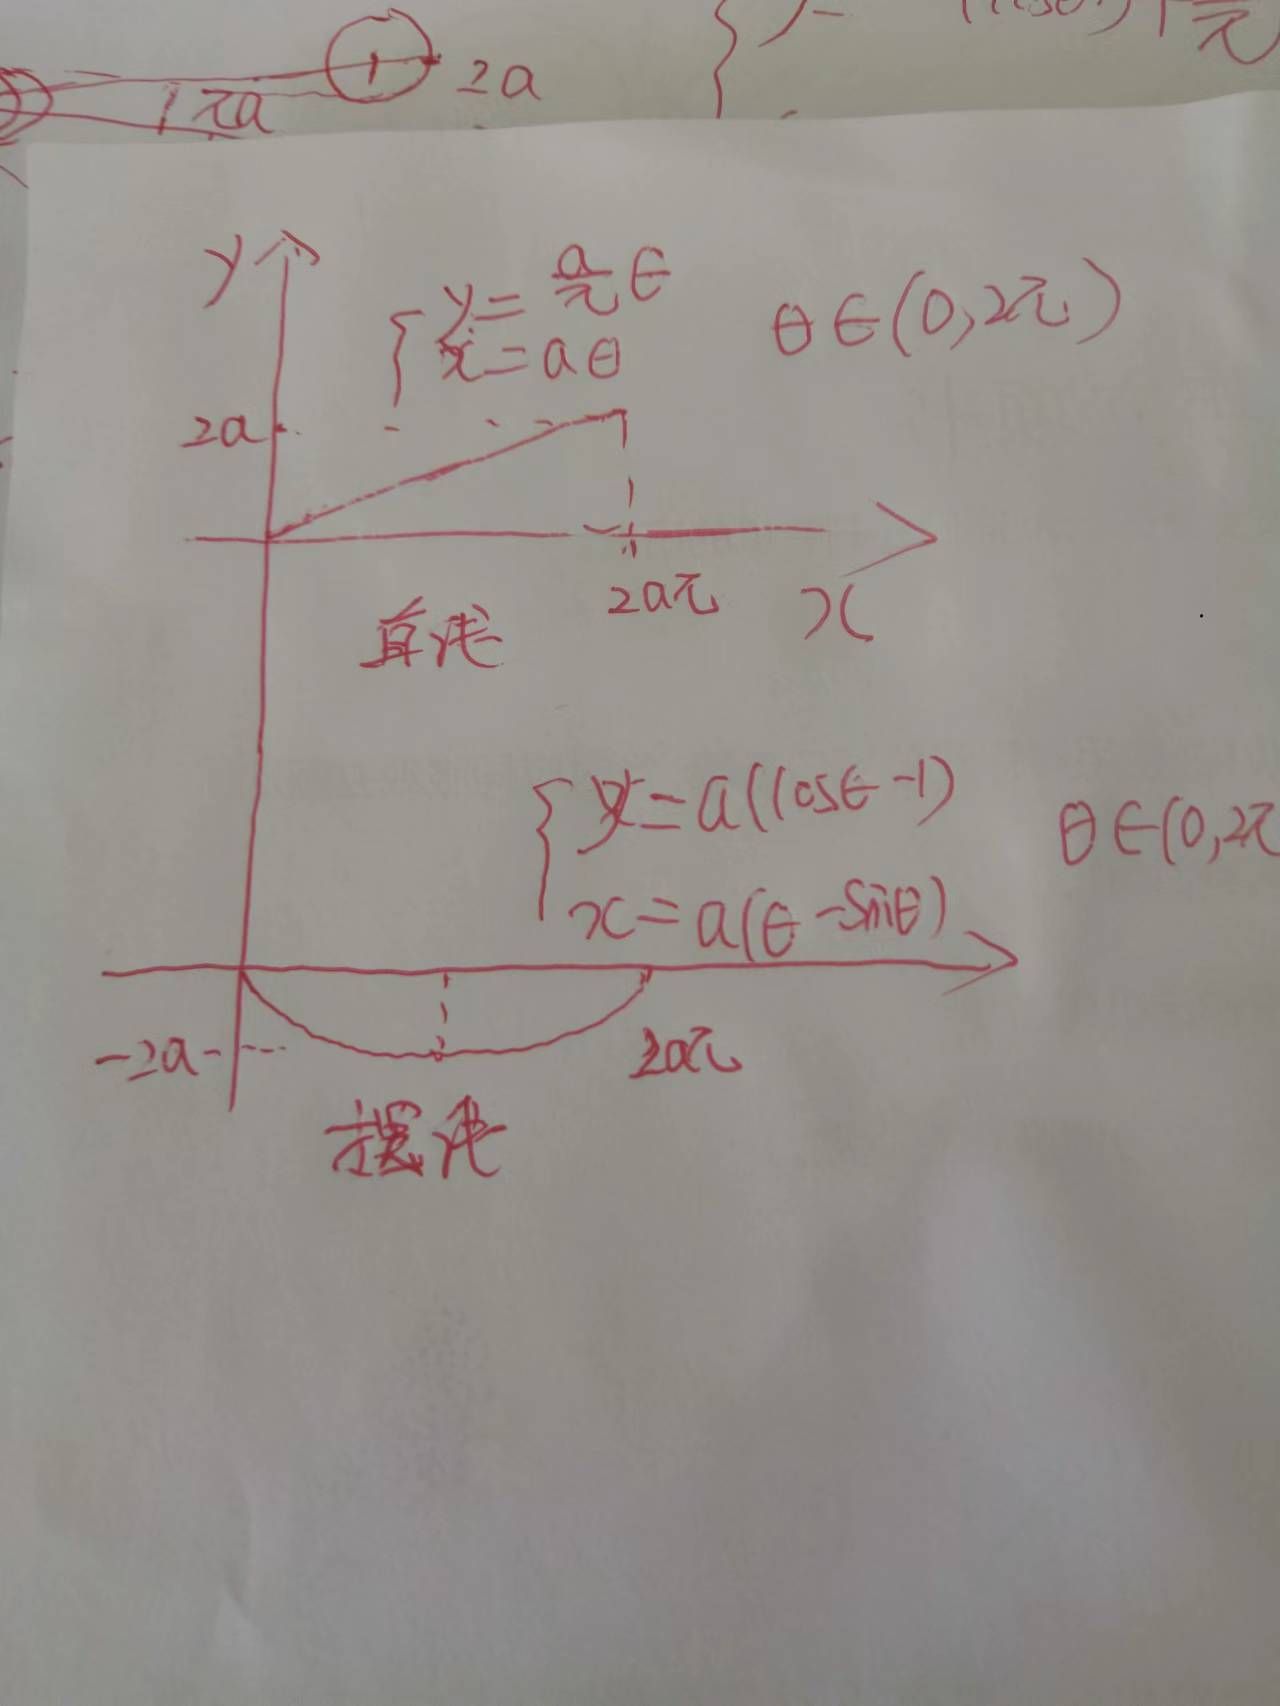 2a
πa
y
y = a/π θ
x = aθ
θ∈(0,2π)
2a
2aπ
x
直线
y = a(cosθ-1)
x = a(θ-sinθ)
θ∈(0,2π
-2a
2aπ
摆线